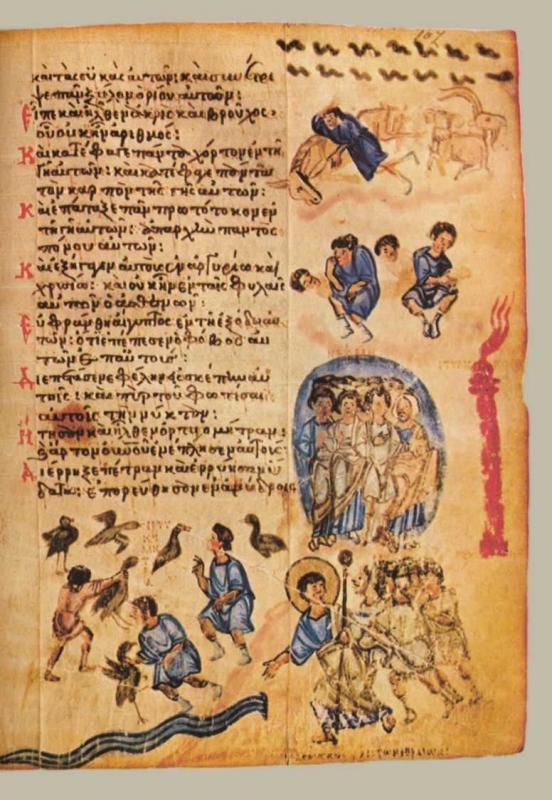 καὶ τὰς συκὰς αὐτῶν· καὶ συνέτρι
ψε πᾶν ξύλον ὁρίου αὐτῶν·
Εἶπε καὶ ἦλθεν ἀκρὶς καὶ βροῦχος
οὗ οὐκ ἦν ἀριθμός·
Καὶ κατέφαγε πάντα χόρτον ἐν τῇ
γῇ αὐτῶν· καὶ κατέφαγε πάντα
τὸν καρπὸν τῆς γῆς αὐτῶν·
Καὶ ἐπάταξε πᾶν πρωτότοκον ἐν
τῇ γῇ αὐτῶν· ἀπαρχὴν παντὸς
πόνου αὐτῶν·
Καὶ ἐξήγαγεν αὐτοὺς ἐν ἀργυρίῳ καὶ
χρυσίῳ· καὶ οὐκ ἦν ἐν ταῖς φυλαῖς
αὐτῶν ὁ ἀσθενῶν·
Εὐφράνθη Αἴγυπτος ἐν τῇ ἐξόδῳ αὐ
τῶν· ὅτι ἐπέπεσεν ὁ φόβος αὐ
τῶν ἐπ' αὐτούς·
Διεπέτασε νεφέλην εἰς σκέπην αὐ
τοῖς· καὶ πῦρ τοῦ φωτίσαι
αὐτοῖς τὴν νύκταν·
Ἤιτησαν καὶ ἦλθεν ὀρτυγομήτρα·
ἄρτον οὐνοῦ ἐνέπλησεν αὐτούς·
Διέρρηξε πέτραν καὶ ἐρρύησαν ὕ
δατα· ἐπορεύθησαν ἐν ἀνύδροις